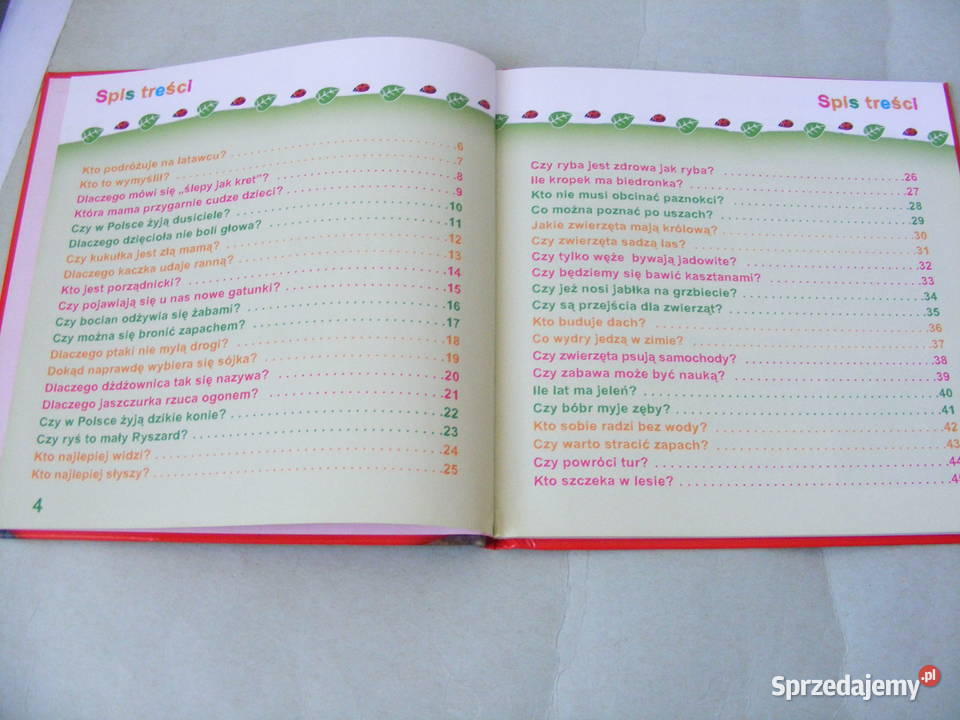 Spis treści
Kto podróżuje na latawcu? 6
Kto to wymyślił? 7
Dlaczego mówi się „ślepy jak kret”? 8
Która mama przygarnie cudze dzieci? 9
Czy w Polsce żyją dusiciele? 10
Dlaczego dzięcioła nie boli głowa? 11
Czy kukułka jest złą mamą? 12
Dlaczego kaczka udaje ranną? 13
Kto jest porządnicki? 14
Czy pojawiają się u nas nowe gatunki? 15
Czy bocian odżywia się żabami? 16
Czy można się bronić zapachem? 17
Dlaczego ptaki nie mylą drogi? 18
Dokąd naprawdę wybiera się sójka? 19
Dlaczego dżdżownica tak się nazywa? 20
Dlaczego jaszczurka rzuca ogonem? 21
Czy w Polsce żyją dzikie konie? 22
Czy ryś to mały Ryszard? 23
Kto najlepiej widzi? 24
Kto najlepiej słyszy? 25
4
Spis treści
Czy ryba jest zdrowa jak ryba? 26
Ile kropek ma biedronka? 27
Kto nie musi obcinać paznokci? 28
Co można poznać po uszach? 29
Jakie zwierzęta mają królową? 30
Czy zwierzęta sadzą las? 31
Czy tylko węże bywają jadowite? 32
Czy będziemy się bawić kasztanami? 33
Czy jeż nosi jabłka na grzbiecie? 34
Czy są przejścia dla zwierząt? 35
Kto buduje dach? 36
Co wydry jedzą w zimie? 37
Czy zwierzęta psują samochody? 38
Czy zabawa może być nauką? 39
Ile lat ma jeleń? 40
Czy bóbr myje zęby? 41
Kto sobie radzi bez wody? 42
Czy warto stracić zapach? 43
Czy powróci tur? 44
Kto szczeka w lesie?
Sprzedajemy.pl